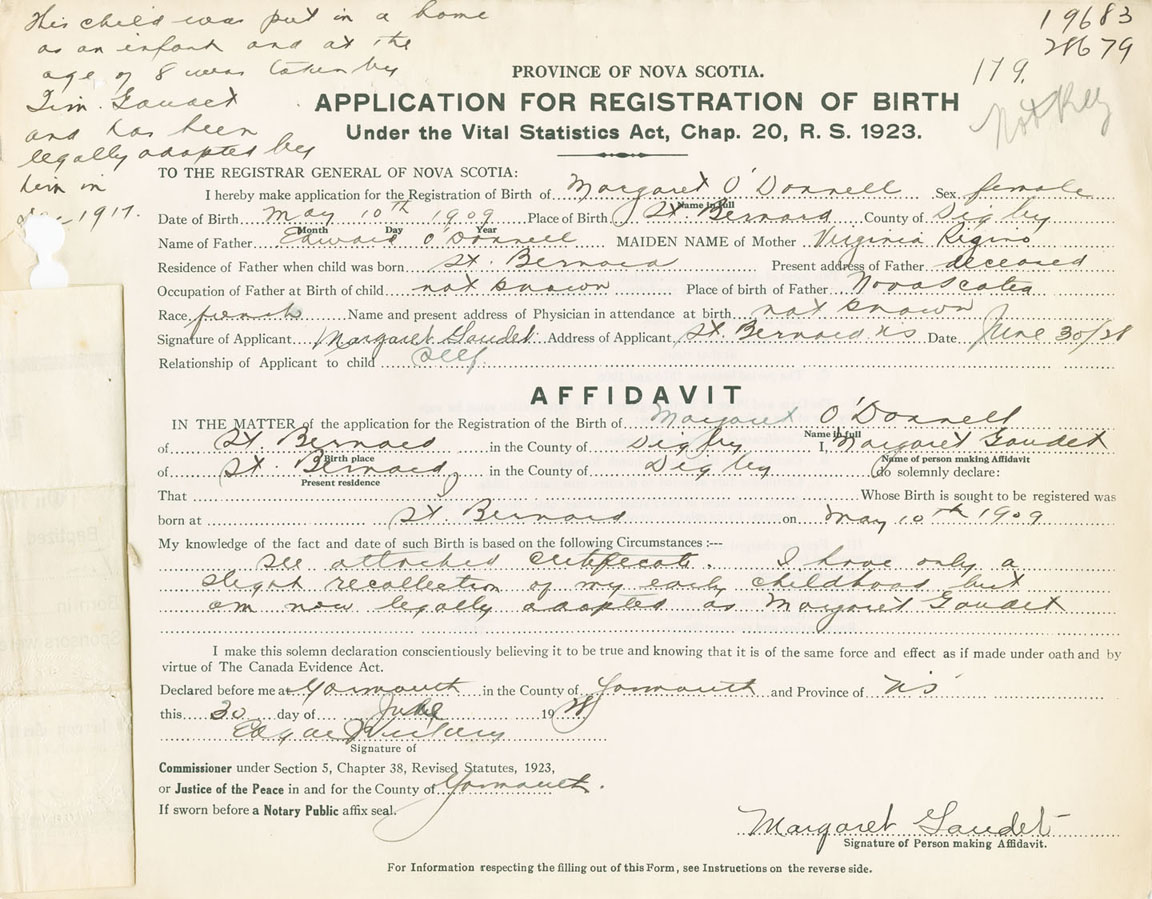 This child was put in a home
as an infant and at the
age of 8 was taken by
Tim. Gaudet
and has been
legally adopted by
him in
1917.
19683
28679
179.
PROVINCE OF NOVA SCOTIA.
APPLICATION FOR REGISTRATION OF BIRTH
Under the Vital Statistics Act, Chap. 20, R. S. 1923.
TO THE REGISTRAR GENERAL OF NOVA SCOTIA:
I hereby make application for the Registration of Birth of Margaret O'Donnell Sex female
Name in full
Date of Birth May 10th 1909 Place of Birth St Bernard County of Digby
Month Day Year
Name of Father Edward O'Donnell MAIDEN NAME of Mother Virginia Regino
Residence of Father when child was born St. Bernard Present address of Father deceased
Occupation of Father at Birth of child not known Place of birth of Father Nova Scotia
Race french Name and present address of Physician in attendance at birth not known
Signature of Applicant Margaret Gaudet Address of Applicant St. Bernard NS Date June 30/28
Relationship of Applicant to child Self.
AFFIDAVIT
IN THE MATTER of the application for the Registration of the Birth of Margaret O'Donnell
Name in full
of St. Bernard in the County of Digby I, Margaret Gaudet
Birth place Name of person making Affidavit
of St. Bernard, in the County of Digby do solemnly declare:
Present residence
That Whose Birth is sought to be registered was
born at St. Bernard on May 10th 1909
My knowledge of the fact and date of such Birth is based on the following Circumstances :---
See attached certificate. I have only a
slight recollection of my early childhood but
am now legally adopted as Margaret Gaudet
I make this solemn declaration conscientiously believing it to be true and knowing that it is of the same force and effect as if made under oath and by
virtue of The Canada Evidence Act.
Declared before me at Yarmouth in the County of Yarmouth and Province of NS
this 30 day of June 1928
Edgar
Signature of
Commissioner under Section 5, Chapter 38, Revised Statutes, 1923,
or Justice of the Peace in and for the County of Yarmouth.
If sworn before a Notary Public affix seal.
Margaret Gaudet
Signature of Person making Affidavit.
For Information respecting the filling out of this Form, see Instructions on the reverse side.